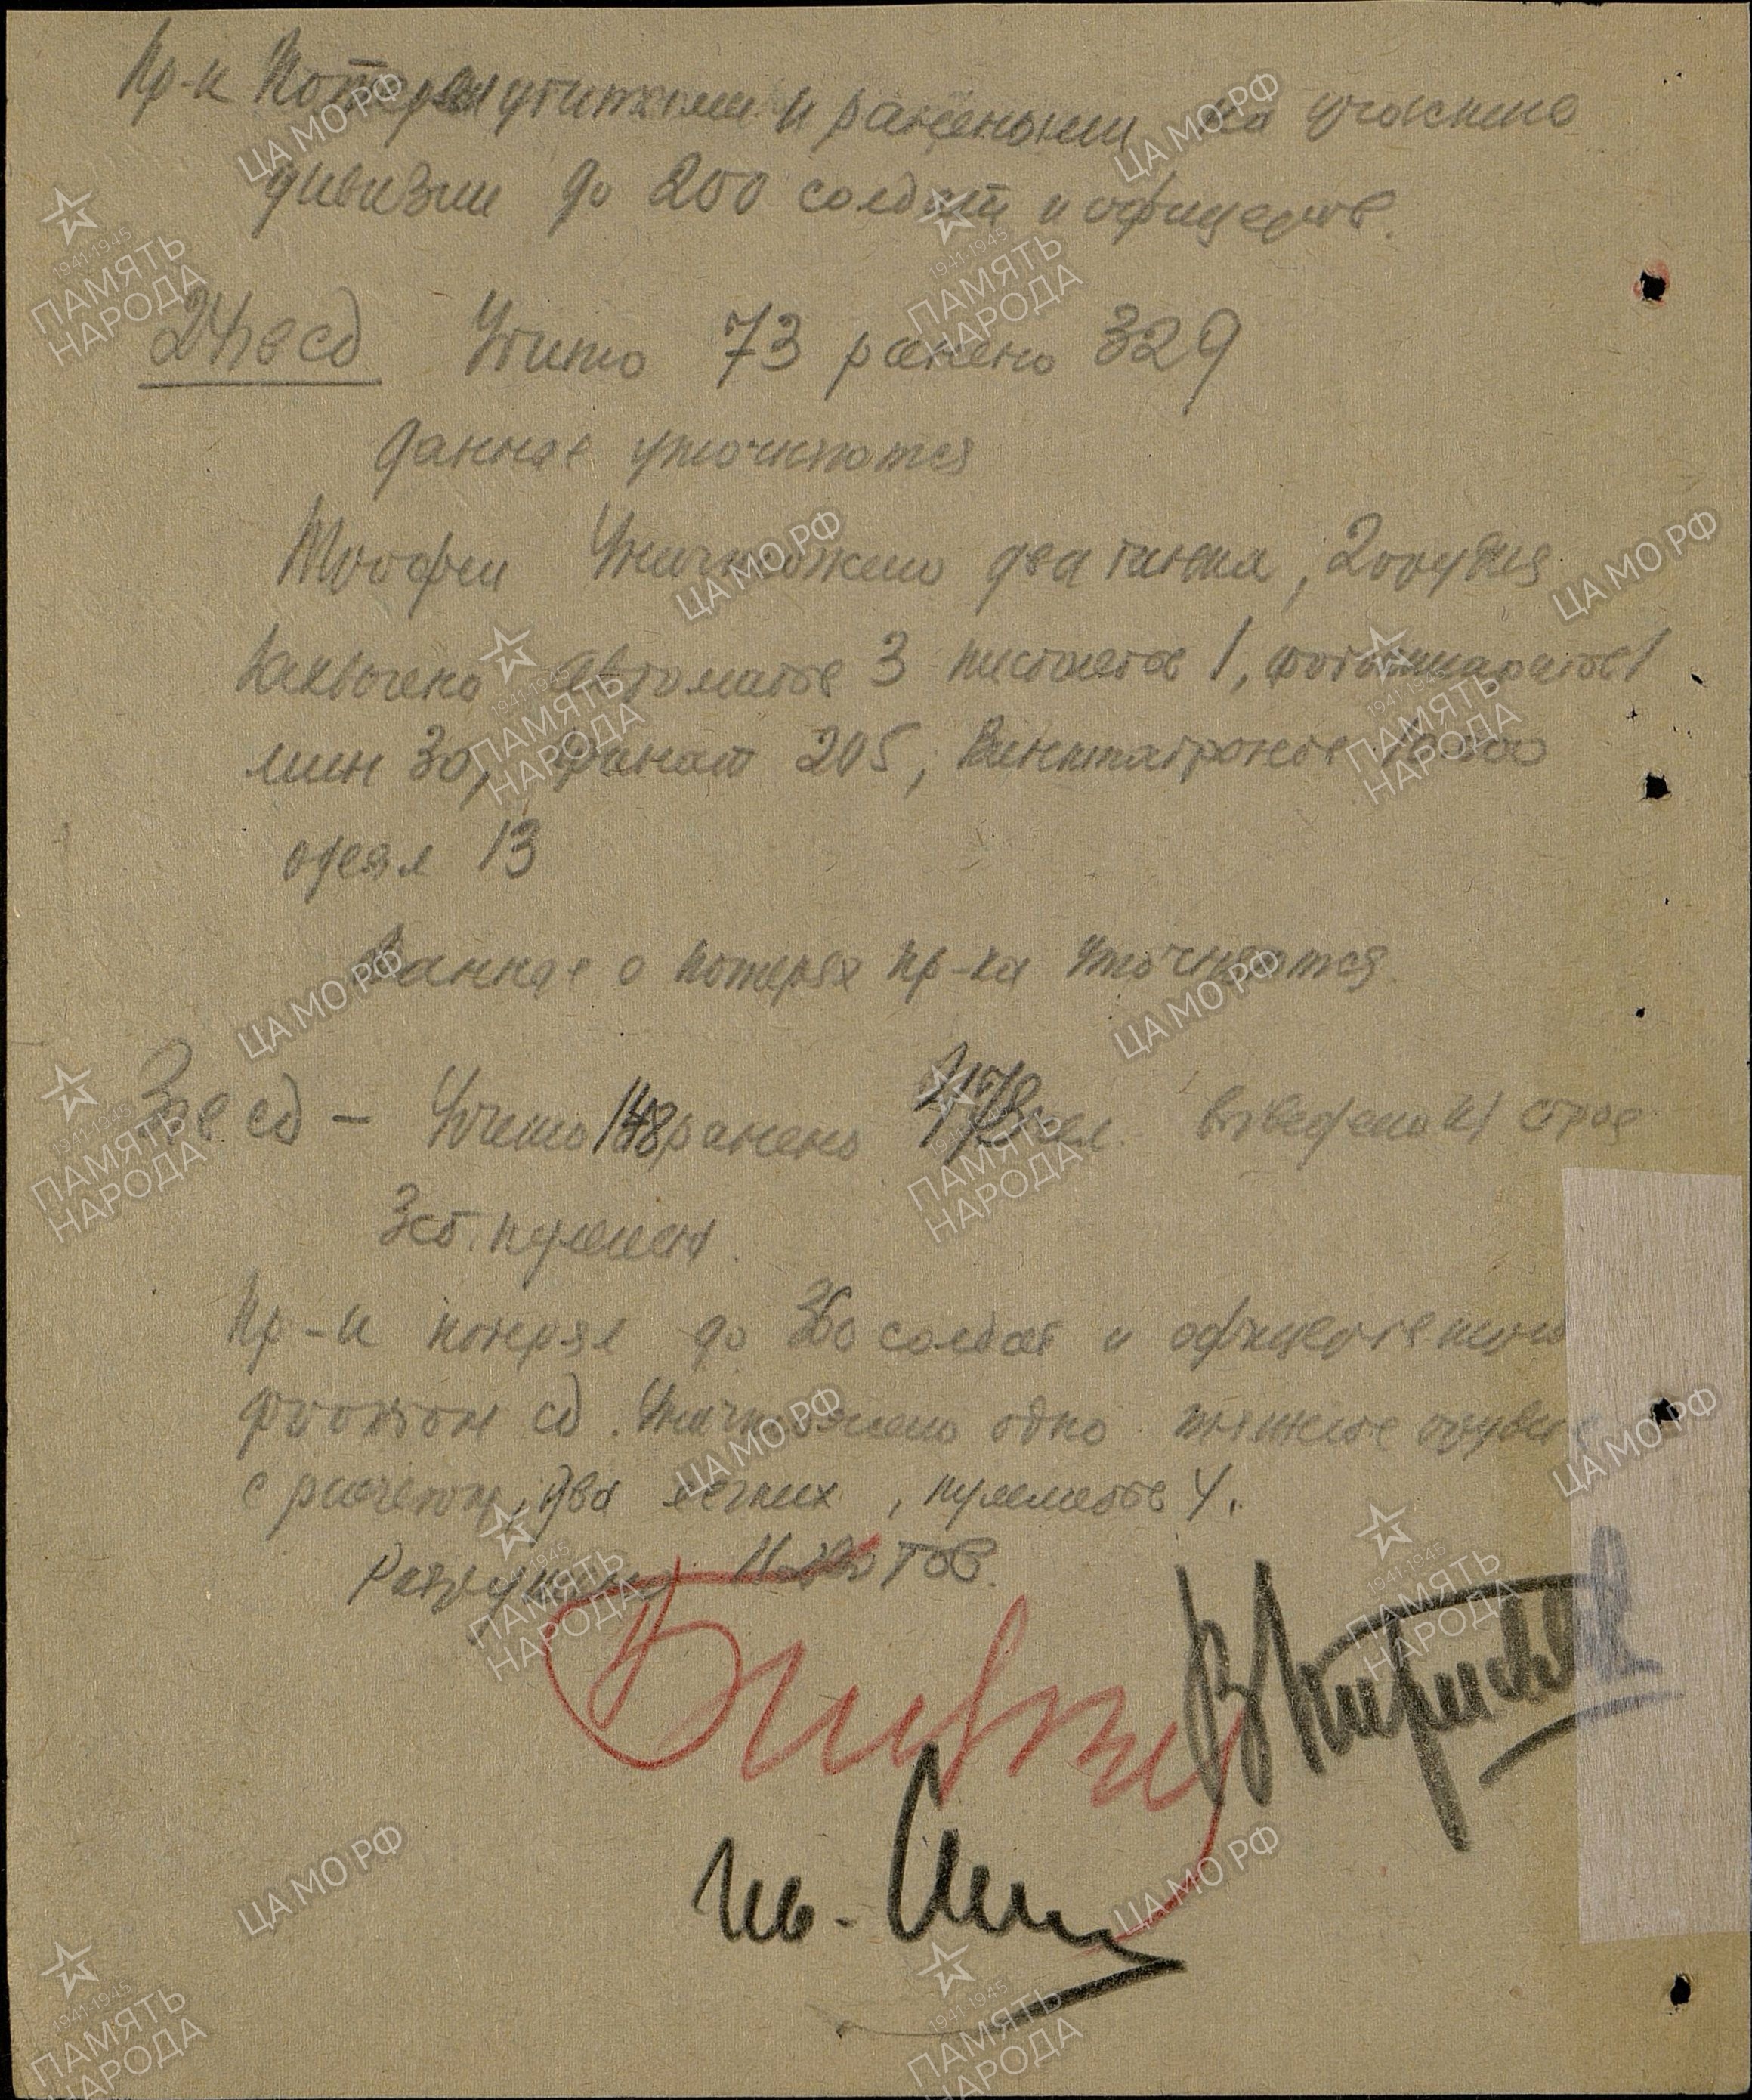 Пр-к Потерял убитыми и ранеными на участке
дивизии до 200 солдат и офицеров.
24 гв сд Убито 73 ранено 329
данные уточняются
Трофеи Уничтожено два танка, 2 орудия
Захвачено автоматов 3 пистолетов 1, фотоаппаратов 1
мин 30, гранат 205, Винтпатронов
одеял 13
Данные о потерях пр-ка уточняются
3 гв сд – Убито 148 ранено чел. выведено из строя
3 ст. пулемет.
Пр-к потерял до солдат и офицеров перед
фронтом сд. Уничтожено одно тяжелое орудие
с расчетом, два легких, пулеметов 4.
Разрушено 11 дзотов.
ЦА МО РФ
1941-1945
ПАМЯТЬ
НАРОДА